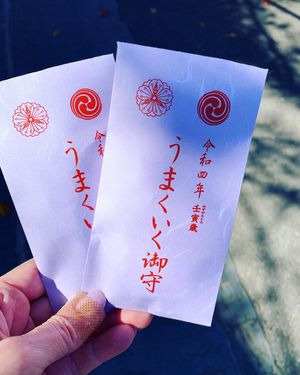 令和四年
壬寅歳
うまくいく御守
令
うまくい